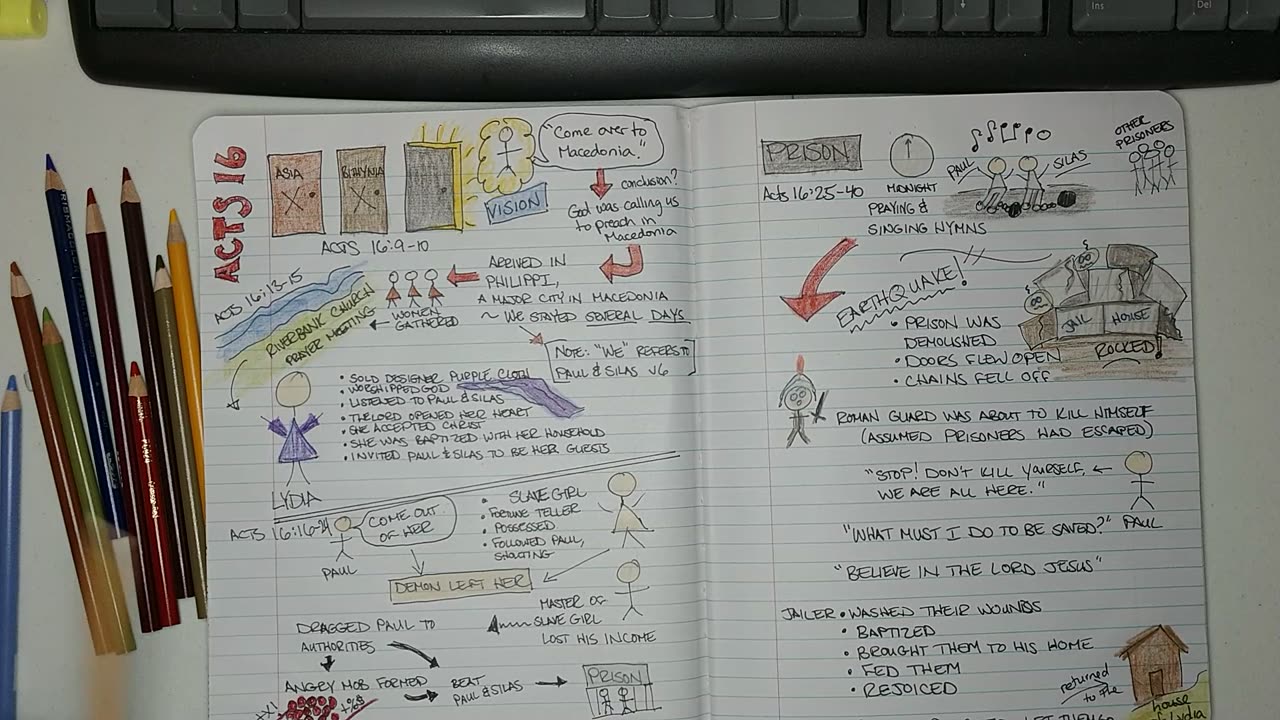 Ins
Del
ACTS 16
ASIA
BITHYNIA
"Come over to
Macedonia."
VISION
conclusion?
God was calling us
to preach in
Macedonia
ACTS 16:9-10
ACTS 16:13-15
RIVERBANK CHURCH
PRAYER MEETING
WOMEN
GATHERED
ARRIVED IN
PHILIPPI,
A MAJOR CITY IN MACEDONIA
~ WE STAYED SEVERAL DAYS
NOTE: "WE" REFERS TO
PAUL & SILAS V6
• SOLD DESIGNER PURPLE CLOTH
• WORSHIPPED GOD
• LISTENED TO PAUL & SILAS
• THE LORD OPENED HER HEART
• SHE ACCEPTED CHRIST
• SHE WAS BAPTIZED WITH HER HOUSEHOLD
• INVITED PAUL & SILAS TO BE HER GUESTS
LYDIA
ACTS 16:16-24
COME OUT
OF HER
PAUL
• SLAVE GIRL
• FORTUNE TELLER
• POSSESSED
• FOLLOWED PAUL,
SHOUTING
DEMON LEFT HER
MASTER OF
SLAVE GIRL
LOST HIS INCOME
DRAGGED PAUL TO
AUTHORITIES
ANGRY MOB FORMED
BEAT
PAUL & SILAS
PRISON
PRISON
Acts 16:25-40
MIDNIGHT
PRAYING &
SINGING HYMNS
PAUL
SILAS
OTHER
PRISONERS
EARTHQUAKE!
• PRISON WAS
DEMOLISHED
• DOORS FLEW OPEN
• CHAINS FELL OFF
JAIL HOUSE
ROCKED!
ROMAN GUARD WAS ABOUT TO KILL HIMSELF
(ASSUMED PRISONERS HAD ESCAPED)
"STOP! DON'T KILL YOURSELF,
WE ARE ALL HERE."
PAUL
"WHAT MUST I DO TO BE SAVED?"
"BELIEVE IN THE LORD JESUS"
JAILER • WASHED THEIR WOUNDS
• BAPTIZED
• BROUGHT THEM TO HIS HOME
• FED THEM
• REJOICED
returned
to the
house
Lydia